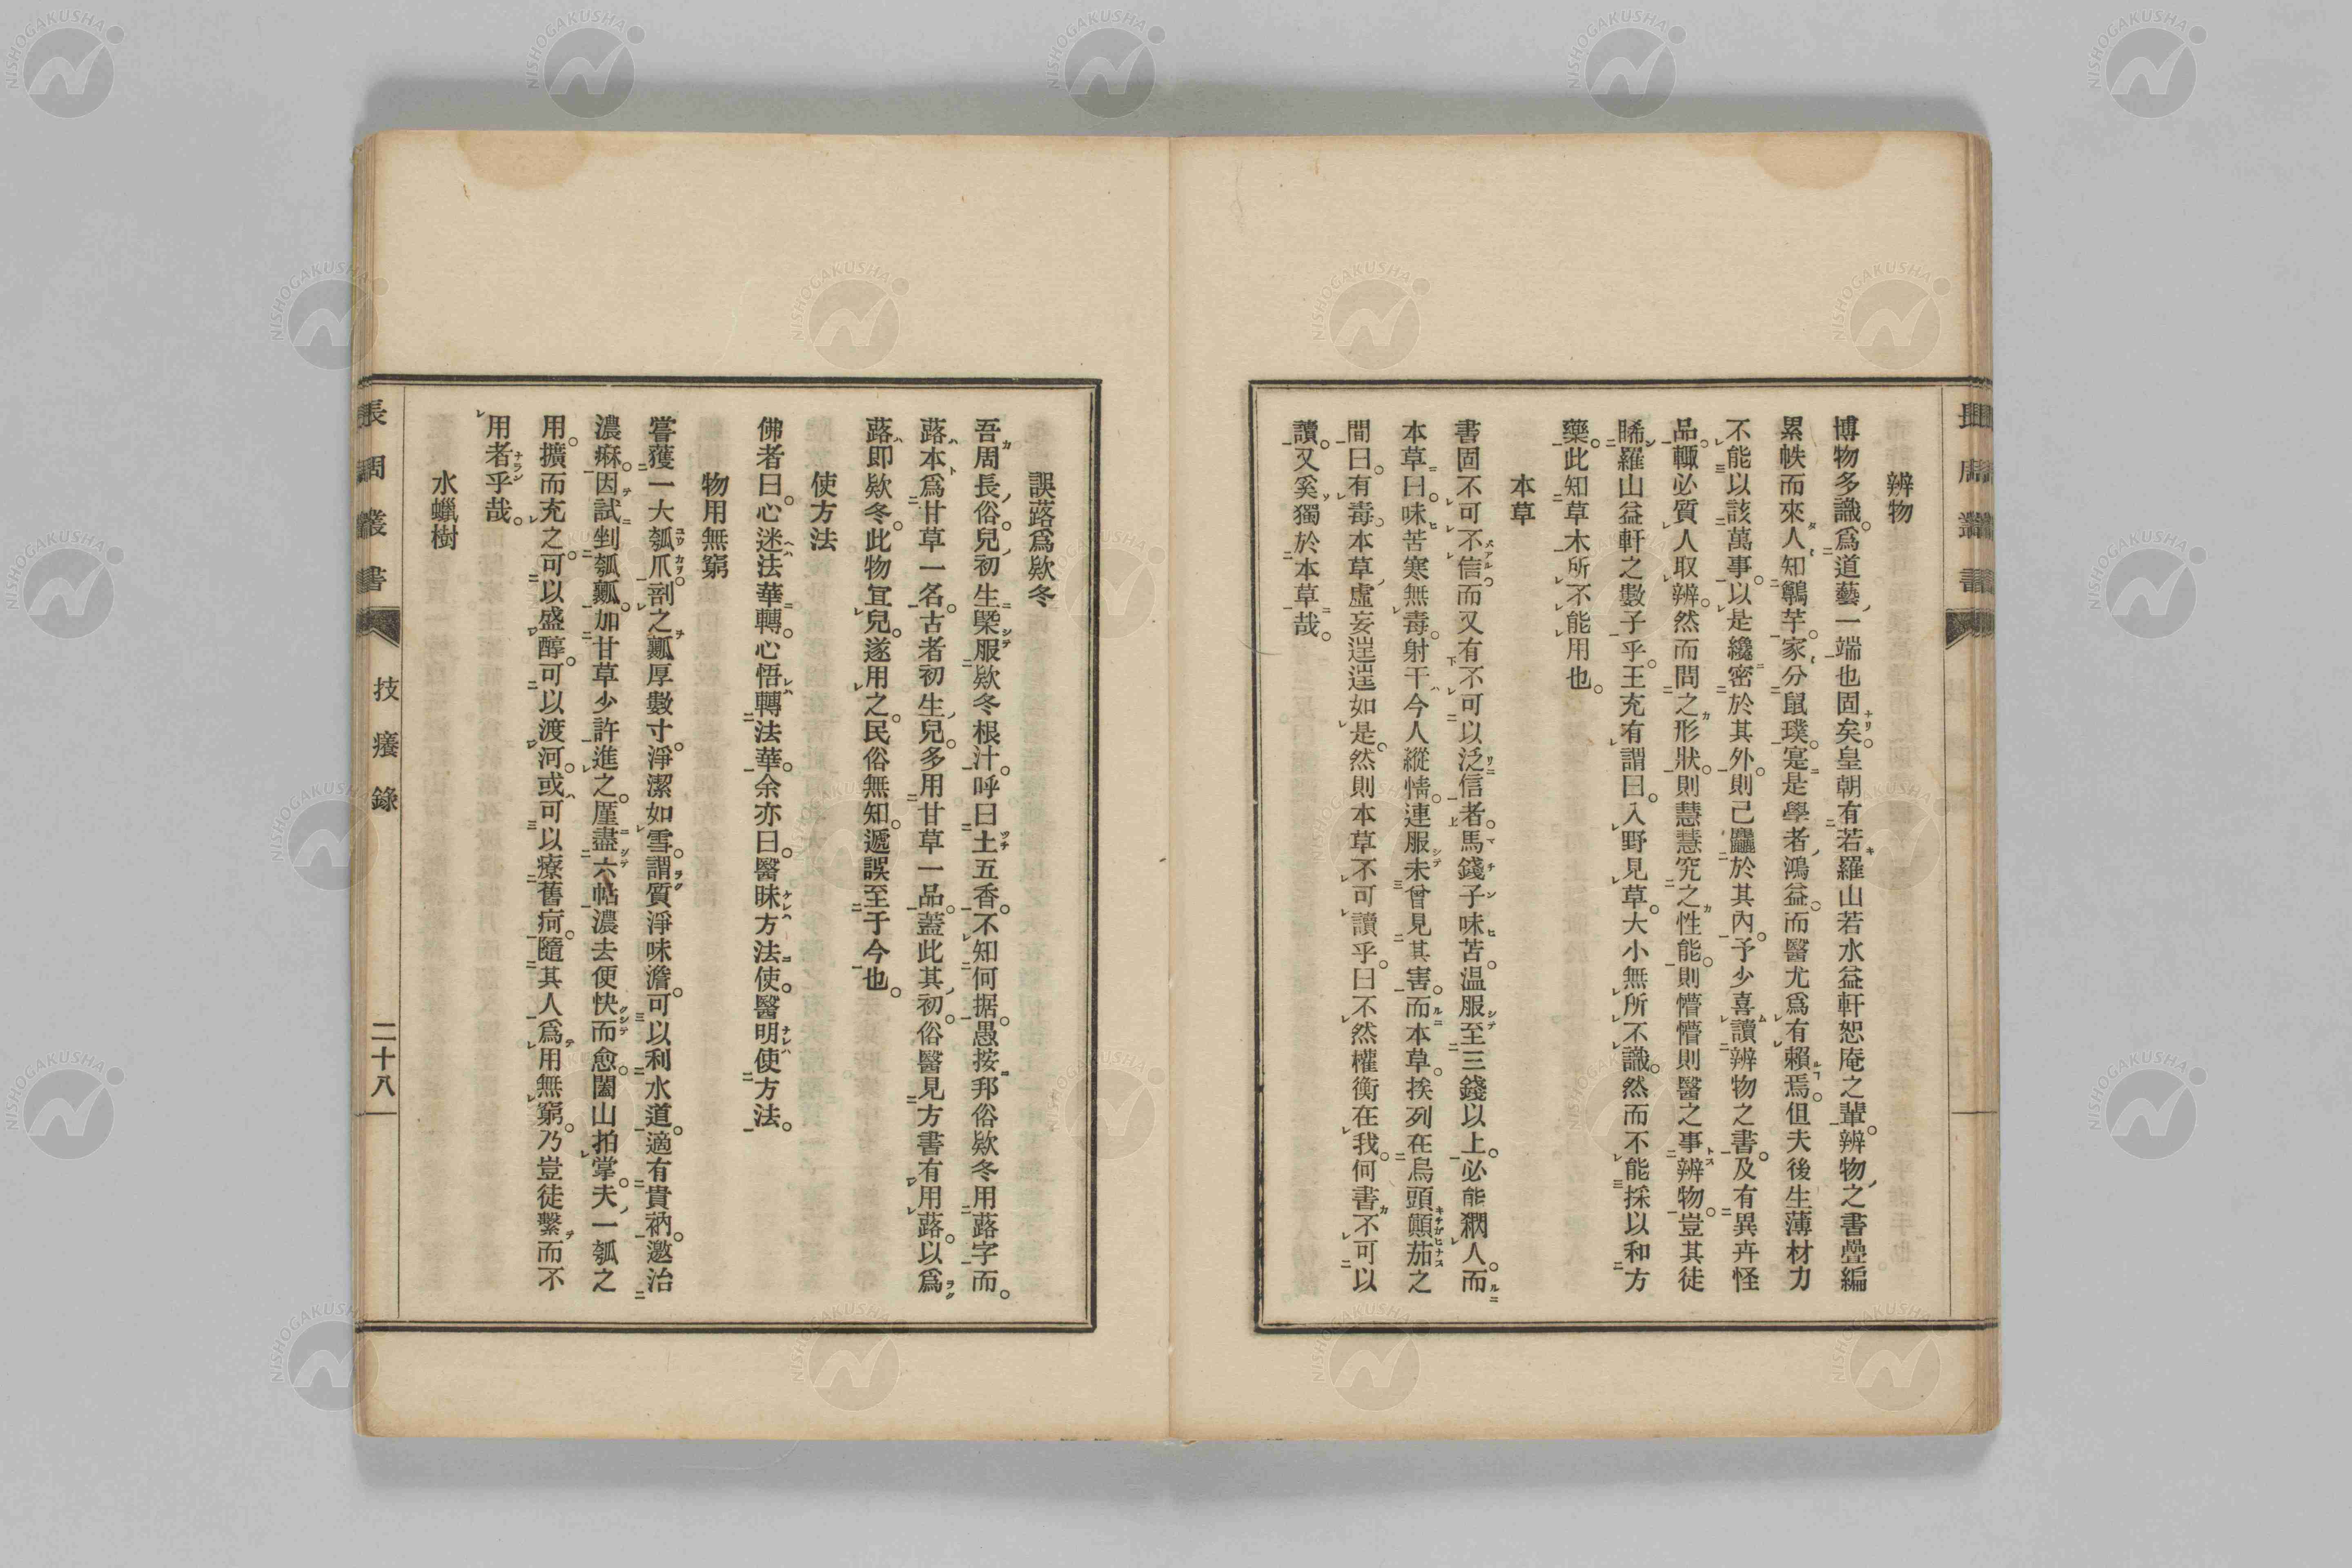 辨物
博物多識。爲道藝ノ一端也固矣。皇朝有若羅山若水益軒恕庵之輩。辨物ノ之書疊編
累帙而來人知鷄芋。家分鼠璞。寔是學者ノ鴻益。而醫尤爲有賴焉。但夫後生薄材力
不能以該萬事。以是纔密於其外。則已麤於其內。予少喜讀辨物之書。及有異卉怪
品。輒必質人取辨。然而問之形狀。則慧慧究之性能。則懵懵則醫之事辨物。豈其徒
睎羅山益軒之數子乎。王充有謂曰。入野見草。大小無所不識。然而不能採以和方
藥。此知草木所不能用也。
本草
書固不可不信。而又有不可以泛信者。馬錢子味苦。温服至三錢以上。必能瘹人。而
本草曰。味苦寒無毒。射干今人縱情。連服未曾見其害。而本草。挨列在烏頭顚茄之
間曰。有毒。本草ノ虛妄逞逞如是。然則本草不可讀乎。曰不然權衡在我。何書不可以
讀。又奚獨於本草哉。
誤蕗爲欵冬
吾周長ノ俗。兒ノ初生槩服欵冬根汁。呼曰土五香。不知何据。愚按邦俗欵冬用蕗字而。
蕗本爲甘草一名。古者初生ノ兒。多用甘草一品。蓋此其ノ初。俗醫見方書有用蕗。以爲
蕗即欵冬。此物宜兒。遂用之。民俗無知。遞誤至于今也。
使方法
佛者曰。心迷法華轉。心悟轉法華。余亦曰。醫昧方法使。醫明使方法。
物用無窮
嘗獲一大瓠爪。剖之瓤厚數寸。淨潔如雪。謂質淨味澹。可以利水道。適有貴衲。邀治
濃痳。因試剉瓠瓤。加甘草少許進之。厪盡六帖濃去便快而愈。闔山拍掌。夫ノ一瓠之
用。擴而充之。可以盛醇。可以渡河。或可以療舊疴。隨其人爲用無窮。乃豈徒繫而不
用者乎哉。
水蠟樹
長周叢書
技癢錄
二十八